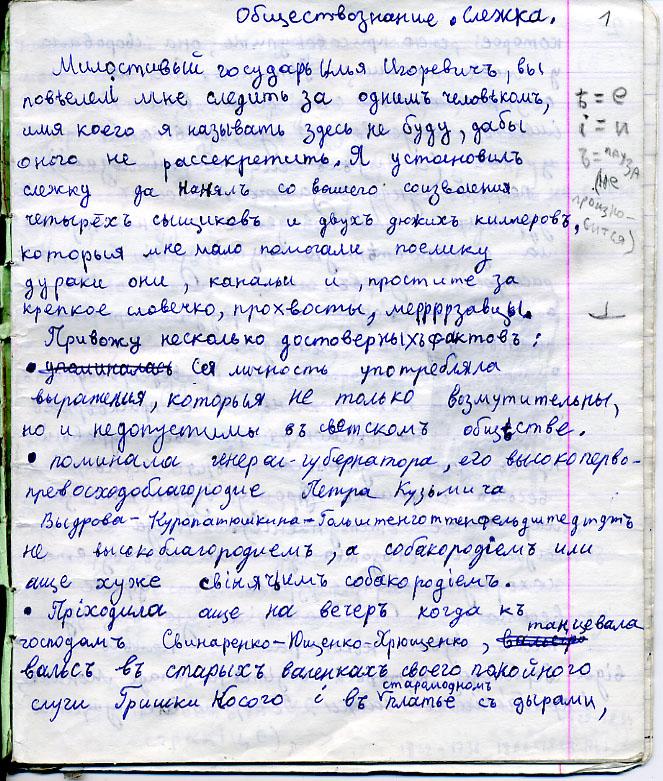 Обществознание. Слежка. 1
Милостивый государь Илья Игоревичъ, вы
повѣлели мне следить за однимъ человѣкомъ,
имя коего я называть здесь не буду, дабы
оного не рассекретить. Я установилъ
слежку да нанялъ со вашего соизволения
четырёхъ сыщиковъ и двухъ дюжихъ киллеровъ,
которыя мне мало помогали поелику
дураки они, канальи и, простите за
крепкое словечко, прохвосты, меррррзавцы.
Привожу несколько достоверныхъ фактовъ:
• упоминалась Сея личность употребляла
выражения, которыя не только возмутительны,
но и недопустимы въ светскомъ общѣстве.
• поминала генерал-губернатора, его высокоперво-
превосходоблагородие Петра Кузьмича
Выдрова-Куропатюшкина-Гольштенготтенфельдштедтдтъ
не высокоблагородиемъ, а собакородіемъ или
аще хуже свінячьимъ собакородіемъ.
• Пріходила аще на вечеръ когда къ
господамъ Свинаренко-Ющенко-Хрющенко, танцевала
вальсъ въ старыхъ валенкахъ своего покойного
слуги Гришки Косого і въ старомодномъ платье съ дырами,
ѣ = е
i = и
ъ = пауза
(не
произно-
сится)